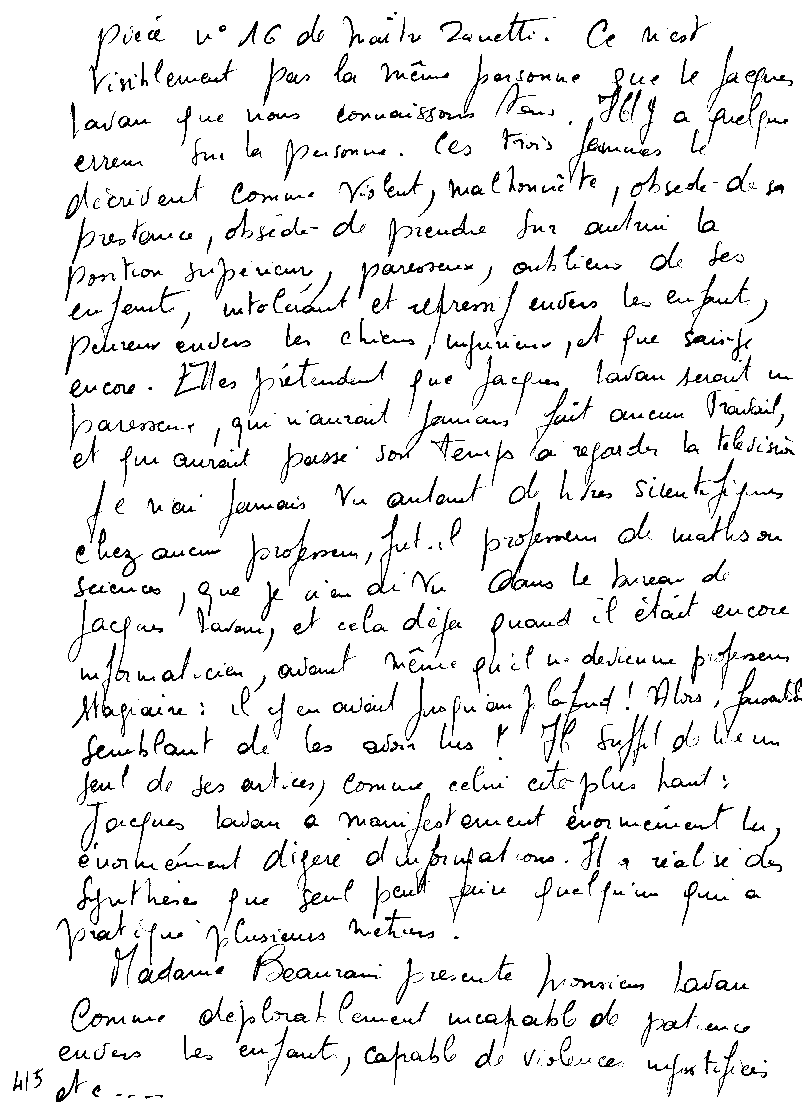 pièce n° 16 de Maître Zanetti. Ce n'est
visiblement pas la même personne que le Jacques
Lavau que nous connaissons tous. Il y a quelque
erreur sur la personne. Ces trois femmes le
décrivent comme violent, malhonnête, obsédé de sa
prestance, obsédé de prendre sur autrui la
position supérieure, paresseux, oublieux de ses
enfants, intolérant et répressif envers les enfants,
peureux envers les chiens, injurieux, et que sais-je
encore. Elles prétendent que Jacques Lavau serait un
paresseux, qui n'aurait jamais fait aucun travail,
et qui aurait passé son temps à regarder la télévision
Je n'ai jamais vu autant de livres scientifiques
chez aucun professeur, fut-il professeur de maths ou
sciences, que je n'en ai vu dans le bureau de
Jacques Lavau, et cela déjà quand il était encore
informaticien, avant même qu'il ne devienne professeur
stagiaire : il y en avait jusqu'au plafond ! Alors,
semblant de les avoir lus ! Il suffit de lire un
seul de ses articles, comme celui cité plus haut :
Jacques Lavau a manifestement énormément lu,
énormément digéré d'informations. Il a réalisé des
synthèses que seul peut faire quelqu'un qui a
pratiqué plusieurs métiers.
Madame Beaurain présente Monsieur Lavau
comme déplorablement incapable de patience
envers les enfants, capable de violences injustifiées
etc ----
4/5